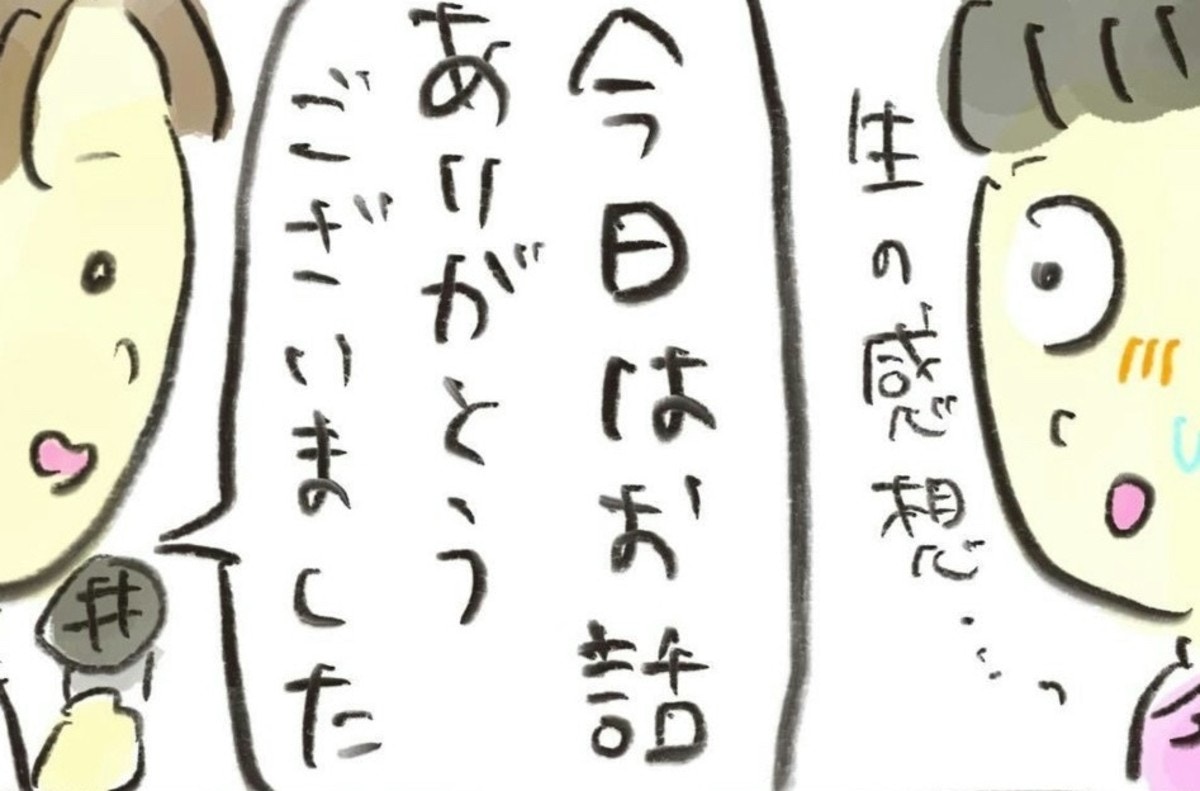 生の感想…
今日はお話
ありがとう
ございました